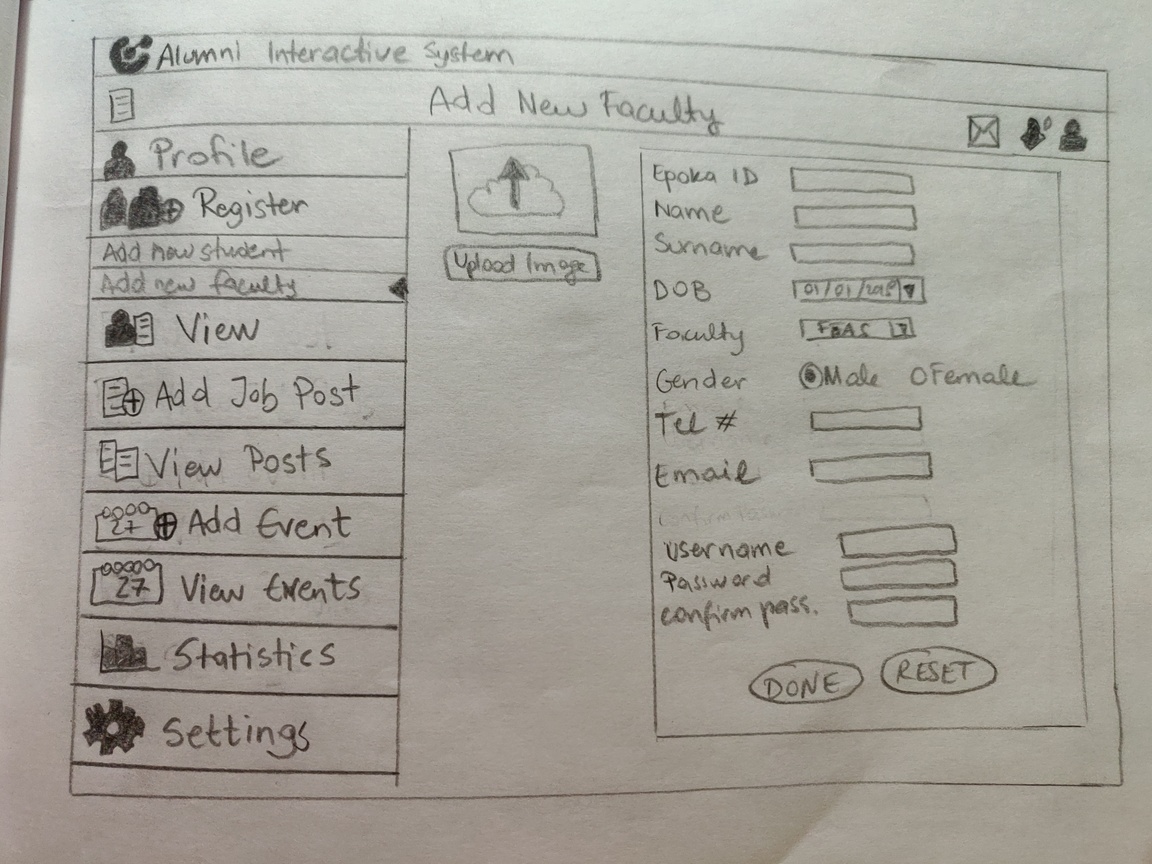 Alumni Interactive System
Add New Faculty
Profile
Register
Add new student
Add new faculty
View
Add Job Post
View Posts
27 Add Event
27 View Events
Statistics
Settings
Upload Image
Epoka ID
Name
Surname
DOB 01/01/
Faculty FEAS
Gender Male Female
Tel #
Email
Confirm Pass
Username
Password
confirm pass.
DONE RESET